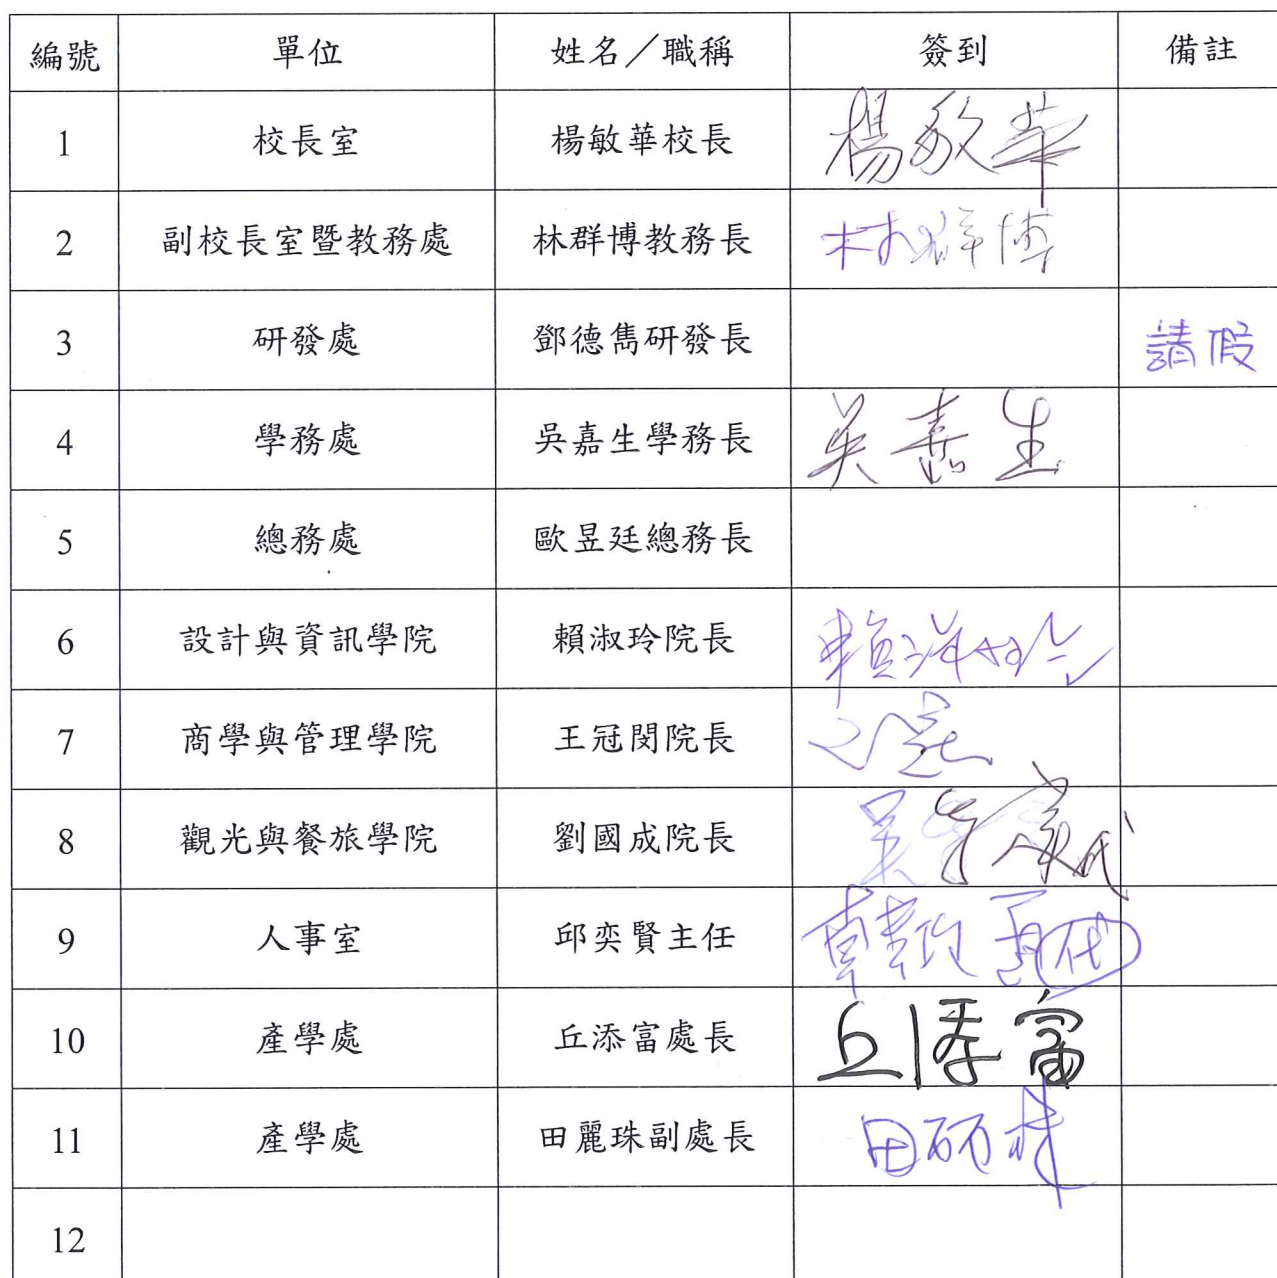 編號 單位 姓名／職稱 簽到 備註
1 校長室 楊敏華校長 楊敏華
2 副校長室暨教務處 林群博教務長 林群博
3 研發處 鄧德雋研發長 請假
4 學務處 吳嘉生學務長 吳嘉生
5 總務處 歐昱廷總務長
6 設計與資訊學院 賴淑玲院長 賴淑玲
7 商學與管理學院 王冠閔院長
8 觀光與餐旅學院 劉國成院長 代
9 人事室 邱奕賢主任 代
10 產學處 丘添富處長 丘添富
11 產學處 田麗珠副處長 田麗珠
12